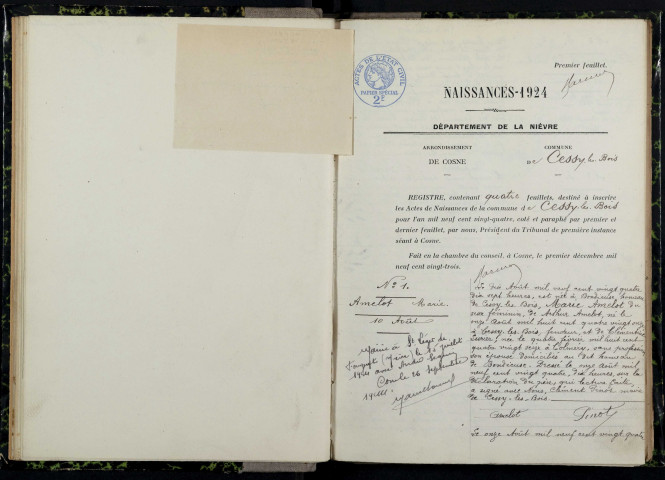 Premier feuillet.
ACTES DE L'ÉTAT CIVIL
PAPIER SPÉCIAL
2F
NAISSANCES-1924
DÉPARTEMENT DE LA NIÈVRE
ARRONDISSEMENT
DE COSNE
COMMUNE
de Cessy les Bois
REGISTRE, contenant quatre feuillets, destiné à inscrire
les Actes de Naissances de la commune de Cessy les Bois
pour l'an mil neuf cent vingt-quatre, coté et paraphé par premier et
dernier feuillet, par nous, Président du Tribunal de première instance
séant à Cosne.
Fait en la chambre du conseil, à Cosne, le premier décembre mil
neuf cent vingt-trois.
No 1.
Amelot Marie.
10 Août
Mariée à St Léger de
(Nièvre) le 26 juillet
1944 avec André
Cosne le 16 septembre
1944.
Le dix Août mil neuf cent vingt quatre
dix sept heures, est née à hameau
de Cessy les Bois, Marie Amelot du
sexe féminin, de Arthur Amelot, né le
onze Août mil huit cent quatre vingt
à Cessy les Bois, et de Clémentine
née le quatre février mil huit cent
quatre vingt seize à sans profession
son épouse domiciliés au dit hameau
de Dressé le onze Août mil
neuf cent vingt quatre, dix heures, sur la
déclaration du père, qui lecture faite,
a signé avec Nous, Clément maire
de Cessy-les-Bois
Amelot
Le onze Août mil neuf cent vingt quatre